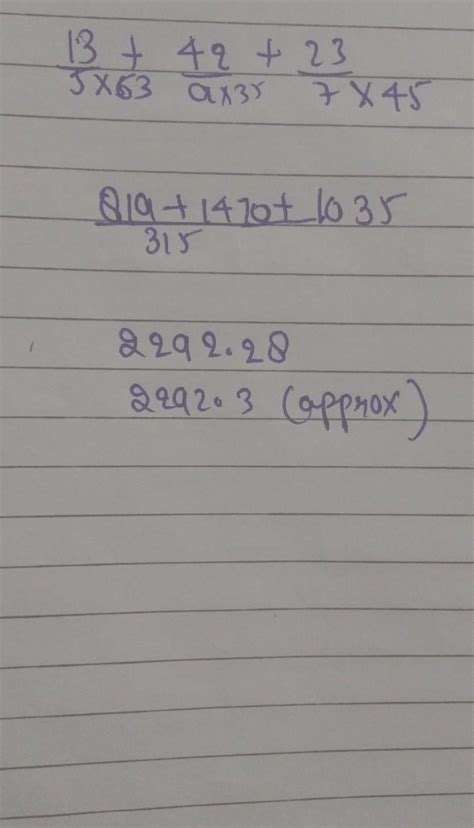 13/5×63 + 42/9×35 + 23/7×45
819+1470+1035/315
2292.28
2292.3 (approx)